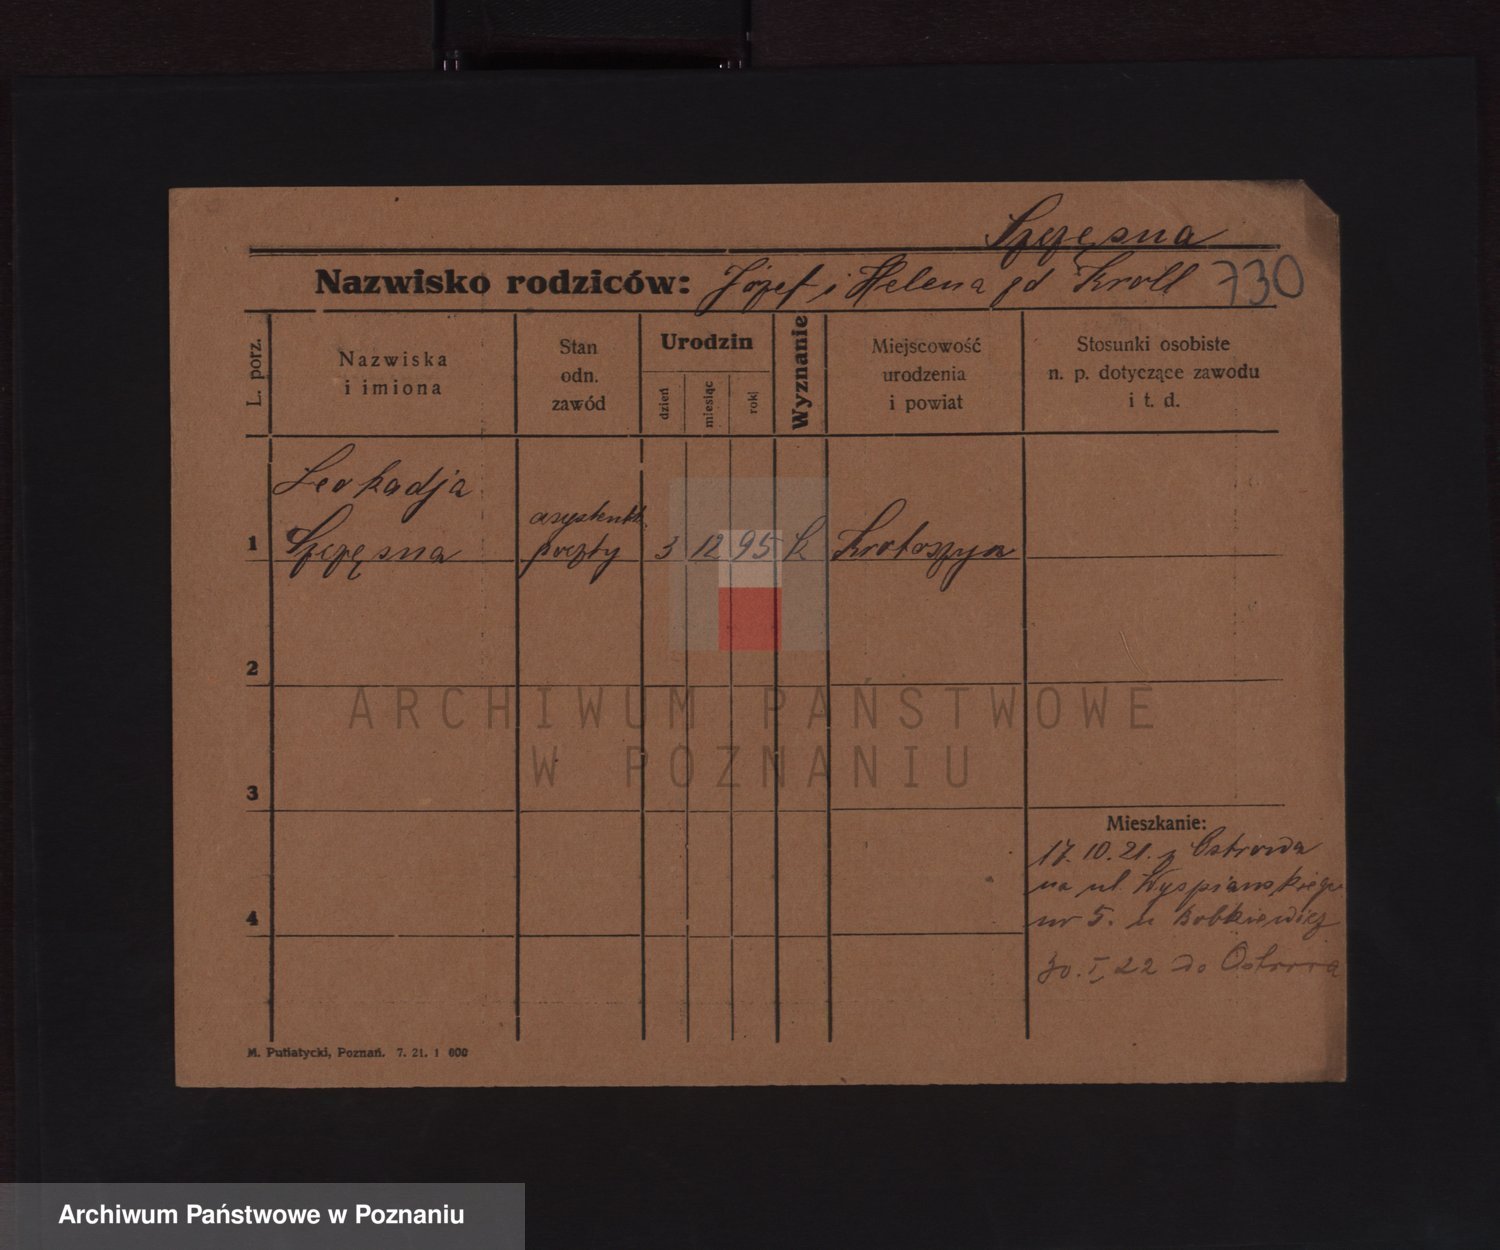 Szczęsna
Nazwisko rodziców: Józef i Helena zd Kroll 730
L. porz.
Nazwiska
i imiona
Stan
odn.
zawód
Urodzin
dzień
miesiąc
rok
Wyznanie
Miejscowość
urodzenia
i powiat
Stosunki osobiste
n. p. dotyczące zawodu
i t. d.
Leokadja
1 Szczęsna
asystentka
poczty
3 12 95 k Krotoszyn
2
3
4
Mieszkanie:
17. 10. 21. z Ostrowa
na ul. Wyspianskiego
nr 5. u Bobkiewicz
30. I. 22 do Ostrowa
M. Putiatycki, Poznań. 7. 21. 1 000
ARCHIWUM PAŃSTWOWE
W POZNANIU
Archiwum Państwowe w Poznaniu